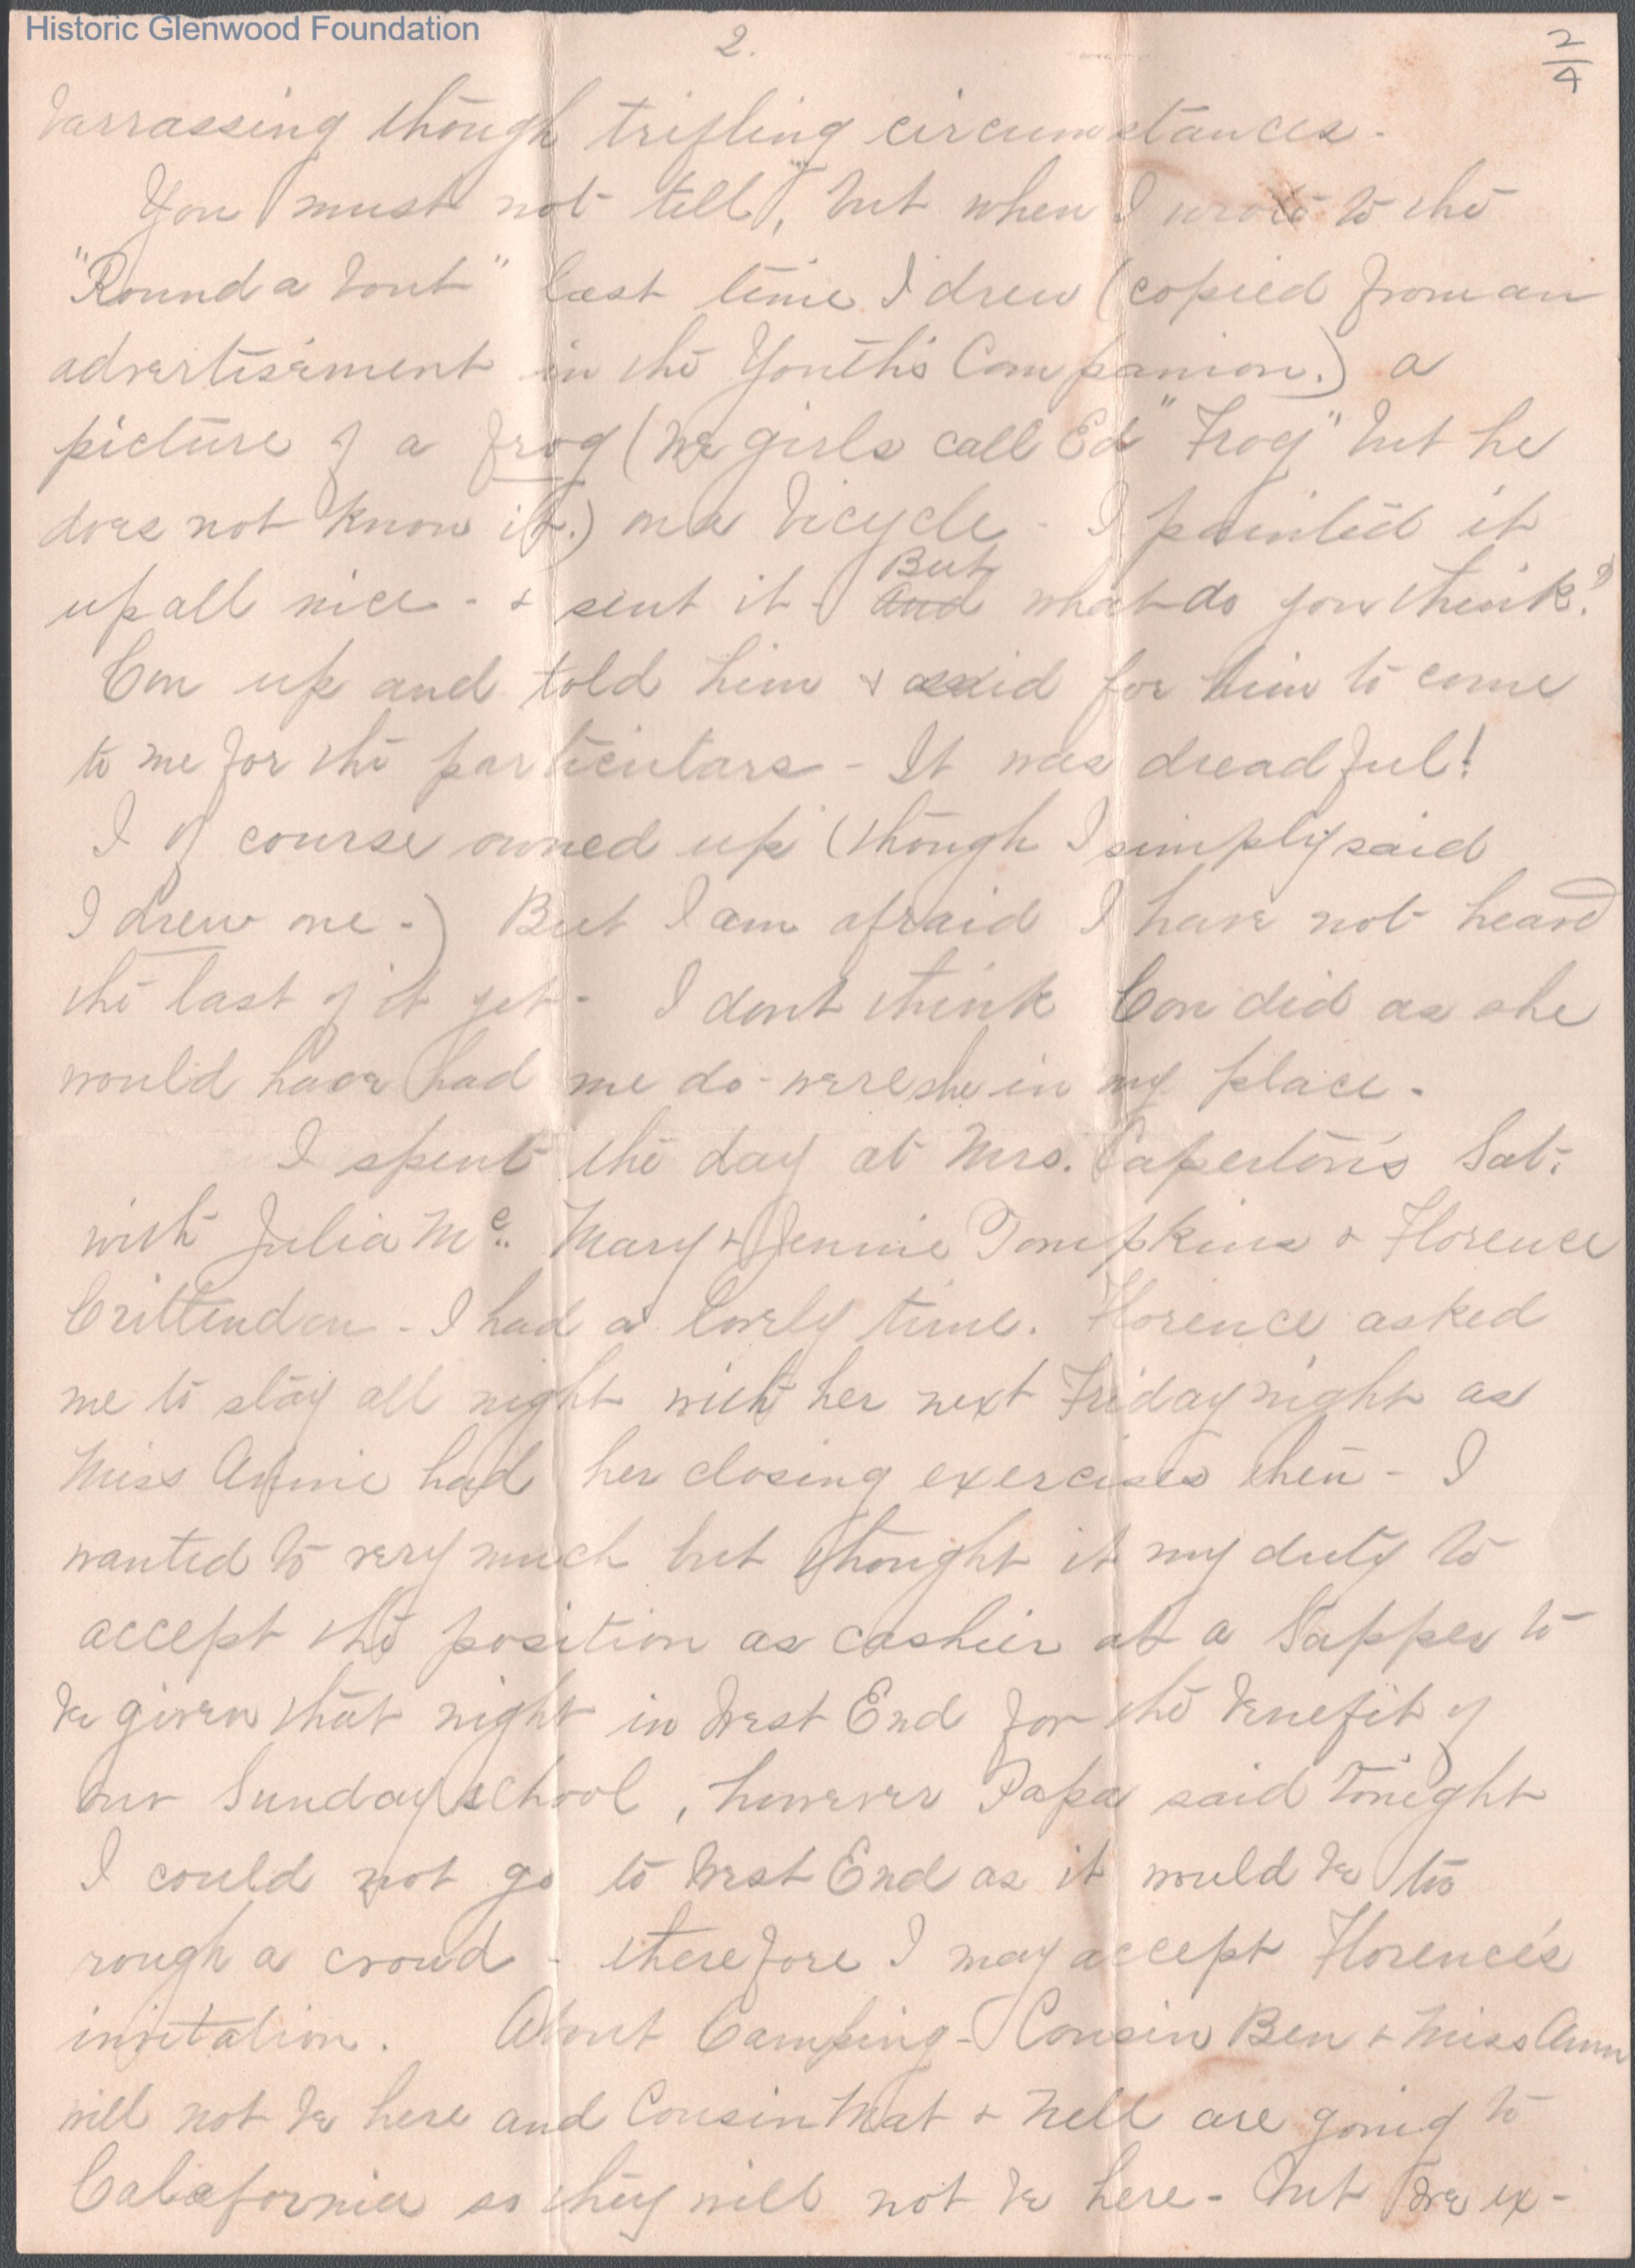 Historic Glenwood Foundation
2.
2/4
barrassing though trifling circumstances -
You must not "tell", but when I wrote to the
"Roundabout" last time I drew (copied from an
advertisement in the Youth's Companion.) a
picture of a frog (we girls call Ed "Frog" but he
does not know it.) on a bicycle - I painted it
up all nice - & sent it - But and what do you think?
Con up and told him & said for him to come
to me for the particulars - It was dreadful!
I of course owned up (though I simply said
I drew one -) But I am afraid I have not heard
the last of it yet - I dont think Con did as she
would have had me do - were she in my place -
I spent the day at Mrs. Caperton's Sat:
with Julia Mc. Mary & Jennie Tompkins & Florence
Crittendon - I had a lovely time. Florence asked
me to stay all night with her next Friday night as
Miss Annie had her closing exercises then - I
wanted to very much but thought it my duty to
accept the position as cashier at a Supper to
be given that night in West End for the benefit of
our Sunday school, however Papa said tonight
I could not go to West End as it would be too
rough a crowd - therefore I may accept Florence's
invitation. About Camping - Cousin Ben & Miss Ann
will not be here and Cousin Mat & Nell are going to
California so they will not be here - but we ex-